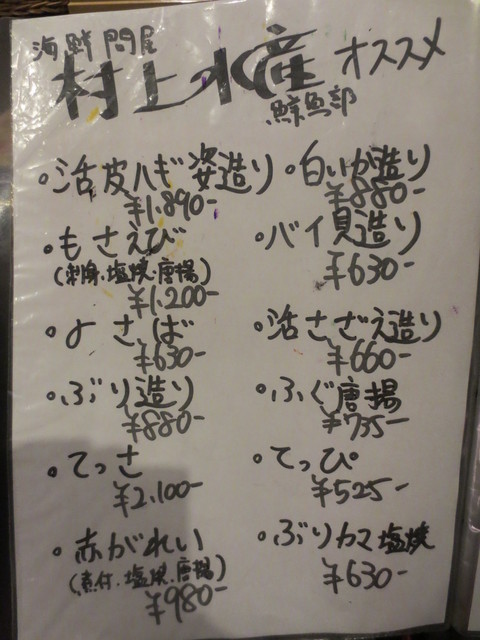 海鮮問屋
村上水産 オススメ
鮮魚部
・活皮ハギ姿造り
¥1,890-
・もさえび
(刺身・塩焼・唐揚)
¥1,200-
・よさば
¥630-
・ぶり造り
¥880-
・てっさ
¥2,100-
・赤がれい
(煮付・塩焼・唐揚)
¥980-
・白いか造り
¥880-
・バイ貝造り
¥630-
・活さざえ造り
¥660-
・ふぐ唐揚
¥735-
・てっぴ
¥525-
・ぶりカマ塩焼
¥630-